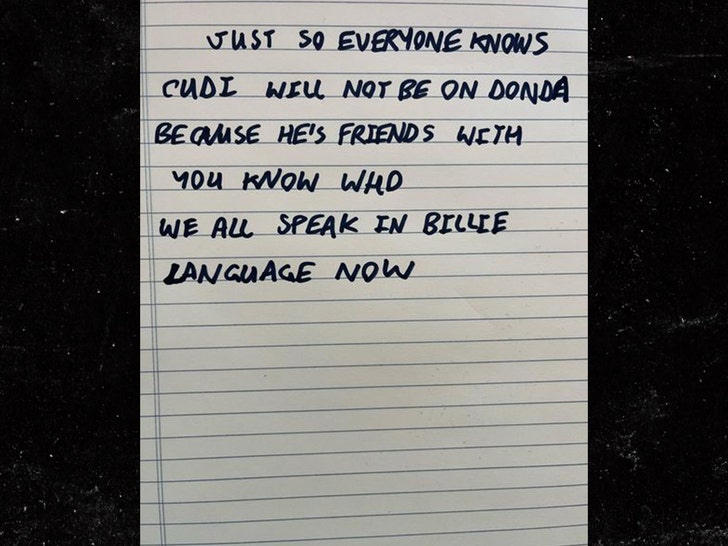 JUST SO EVERYONE KNOWS
CUDI WILL NOT BE ON DONDA
BECAUSE HE'S FRIENDS WITH
YOU KNOW WHO
WE ALL SPEAK IN BILLIE
LANGUAGE NOW